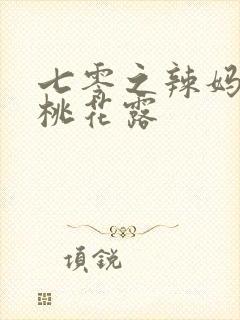 七零之辣妈
桃花露
項鋭